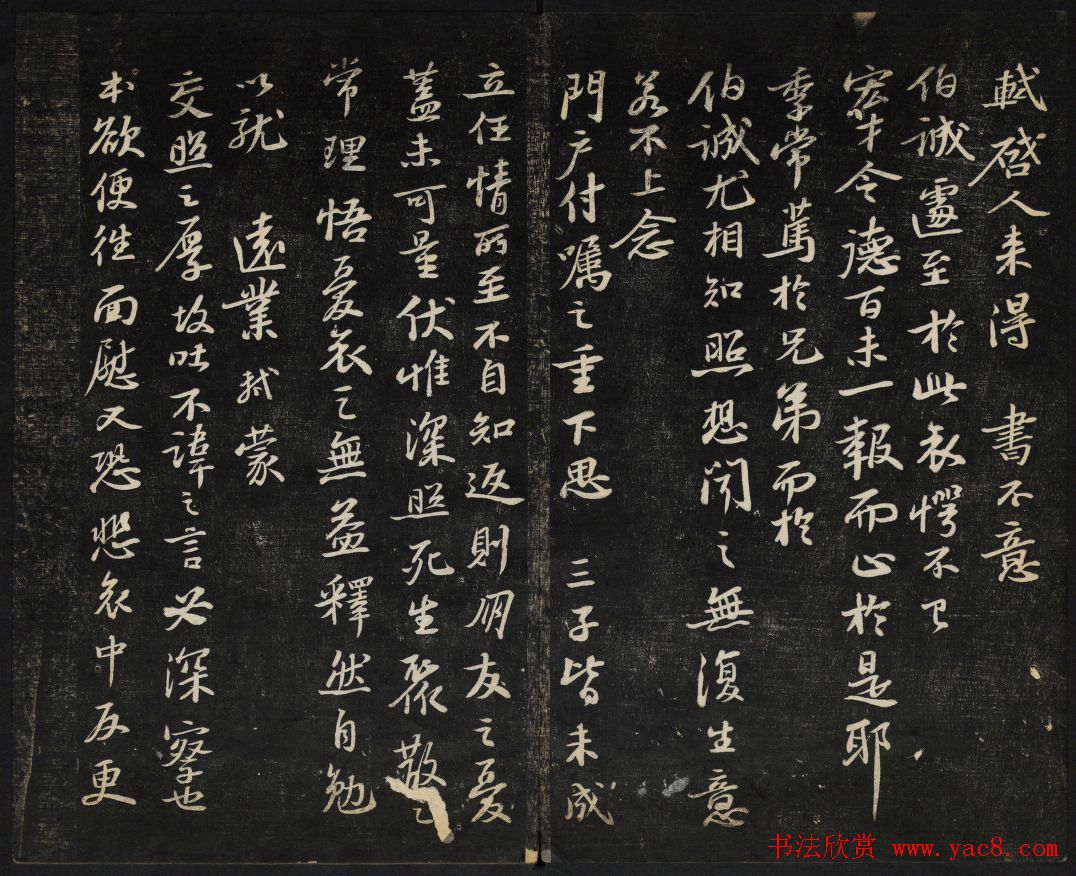 軾啓人来得 書不意
伯誠遽至於此哀愕不已
宏才令德百未一報而止於是耶
季常篤於兄弟而於
伯誠尤相知照想聞之無復生意
若不上念
門户付囑之重下思 三子皆未成
立任情所至不自知返則朋友之憂
蓋未可量伏惟深照死生聚散之
常理悟憂哀之無益釋然自勉
以就 遠業軾蒙
交照之厚故吐不諱之言必深察也
本欲便往面慰又恐悲哀中反更
书法欣赏 www.yac8.com